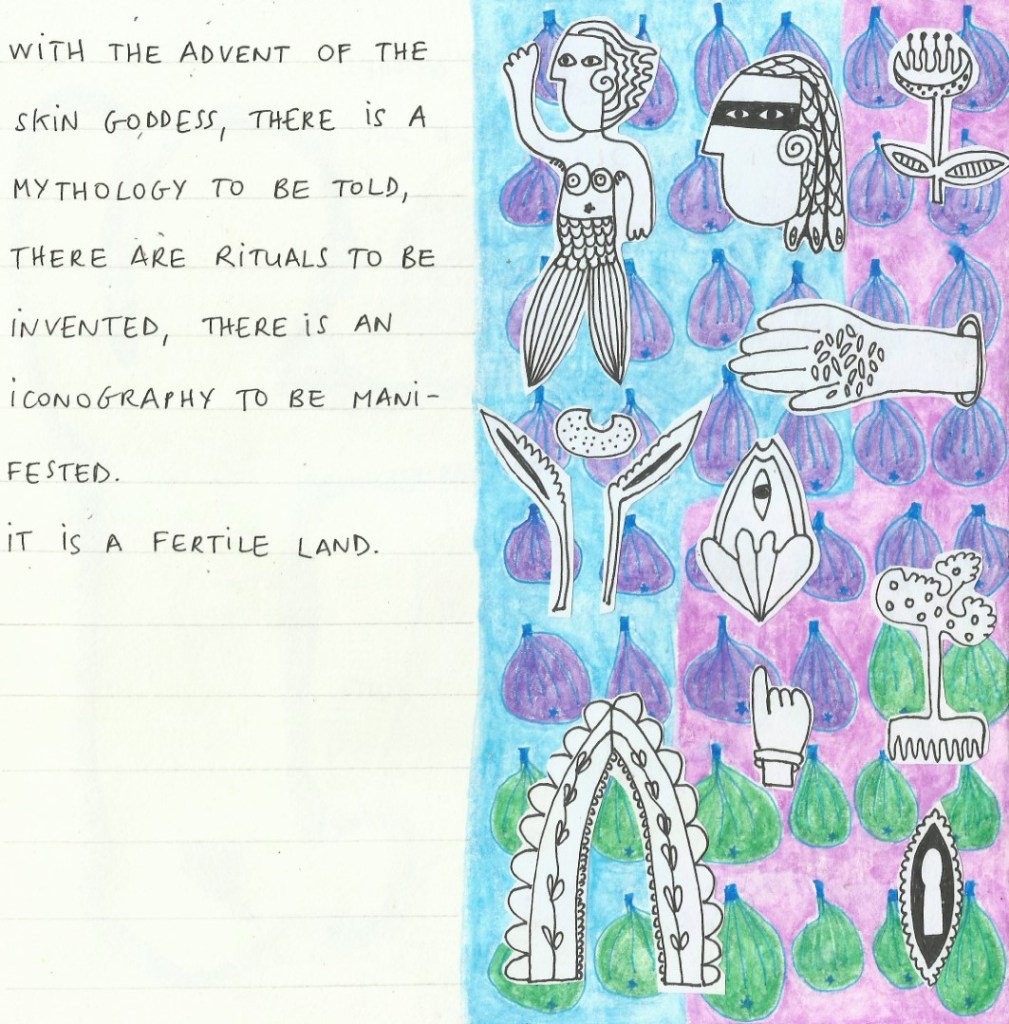 WITH THE ADVENT OF THE
SKIN GODDESS, THERE IS A
MYTHOLOGY TO BE TOLD,
THERE ARE RITUALS TO BE
INVENTED, THERE IS AN
ICONOGRAPHY TO BE MANI-
FESTED.
IT IS A FERTILE LAND.